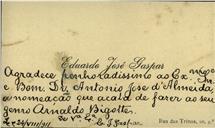 Eduardo José Gaspar
Agradece penhoradissimo ao Ex.mo Snr.
e Bom. Dr. Antonio José d'Almeida,
a nomeação que acaba de fazer ao seu
genro Arnaldo Bigotte.
E. J. Gaspar
Rua das Trinas,